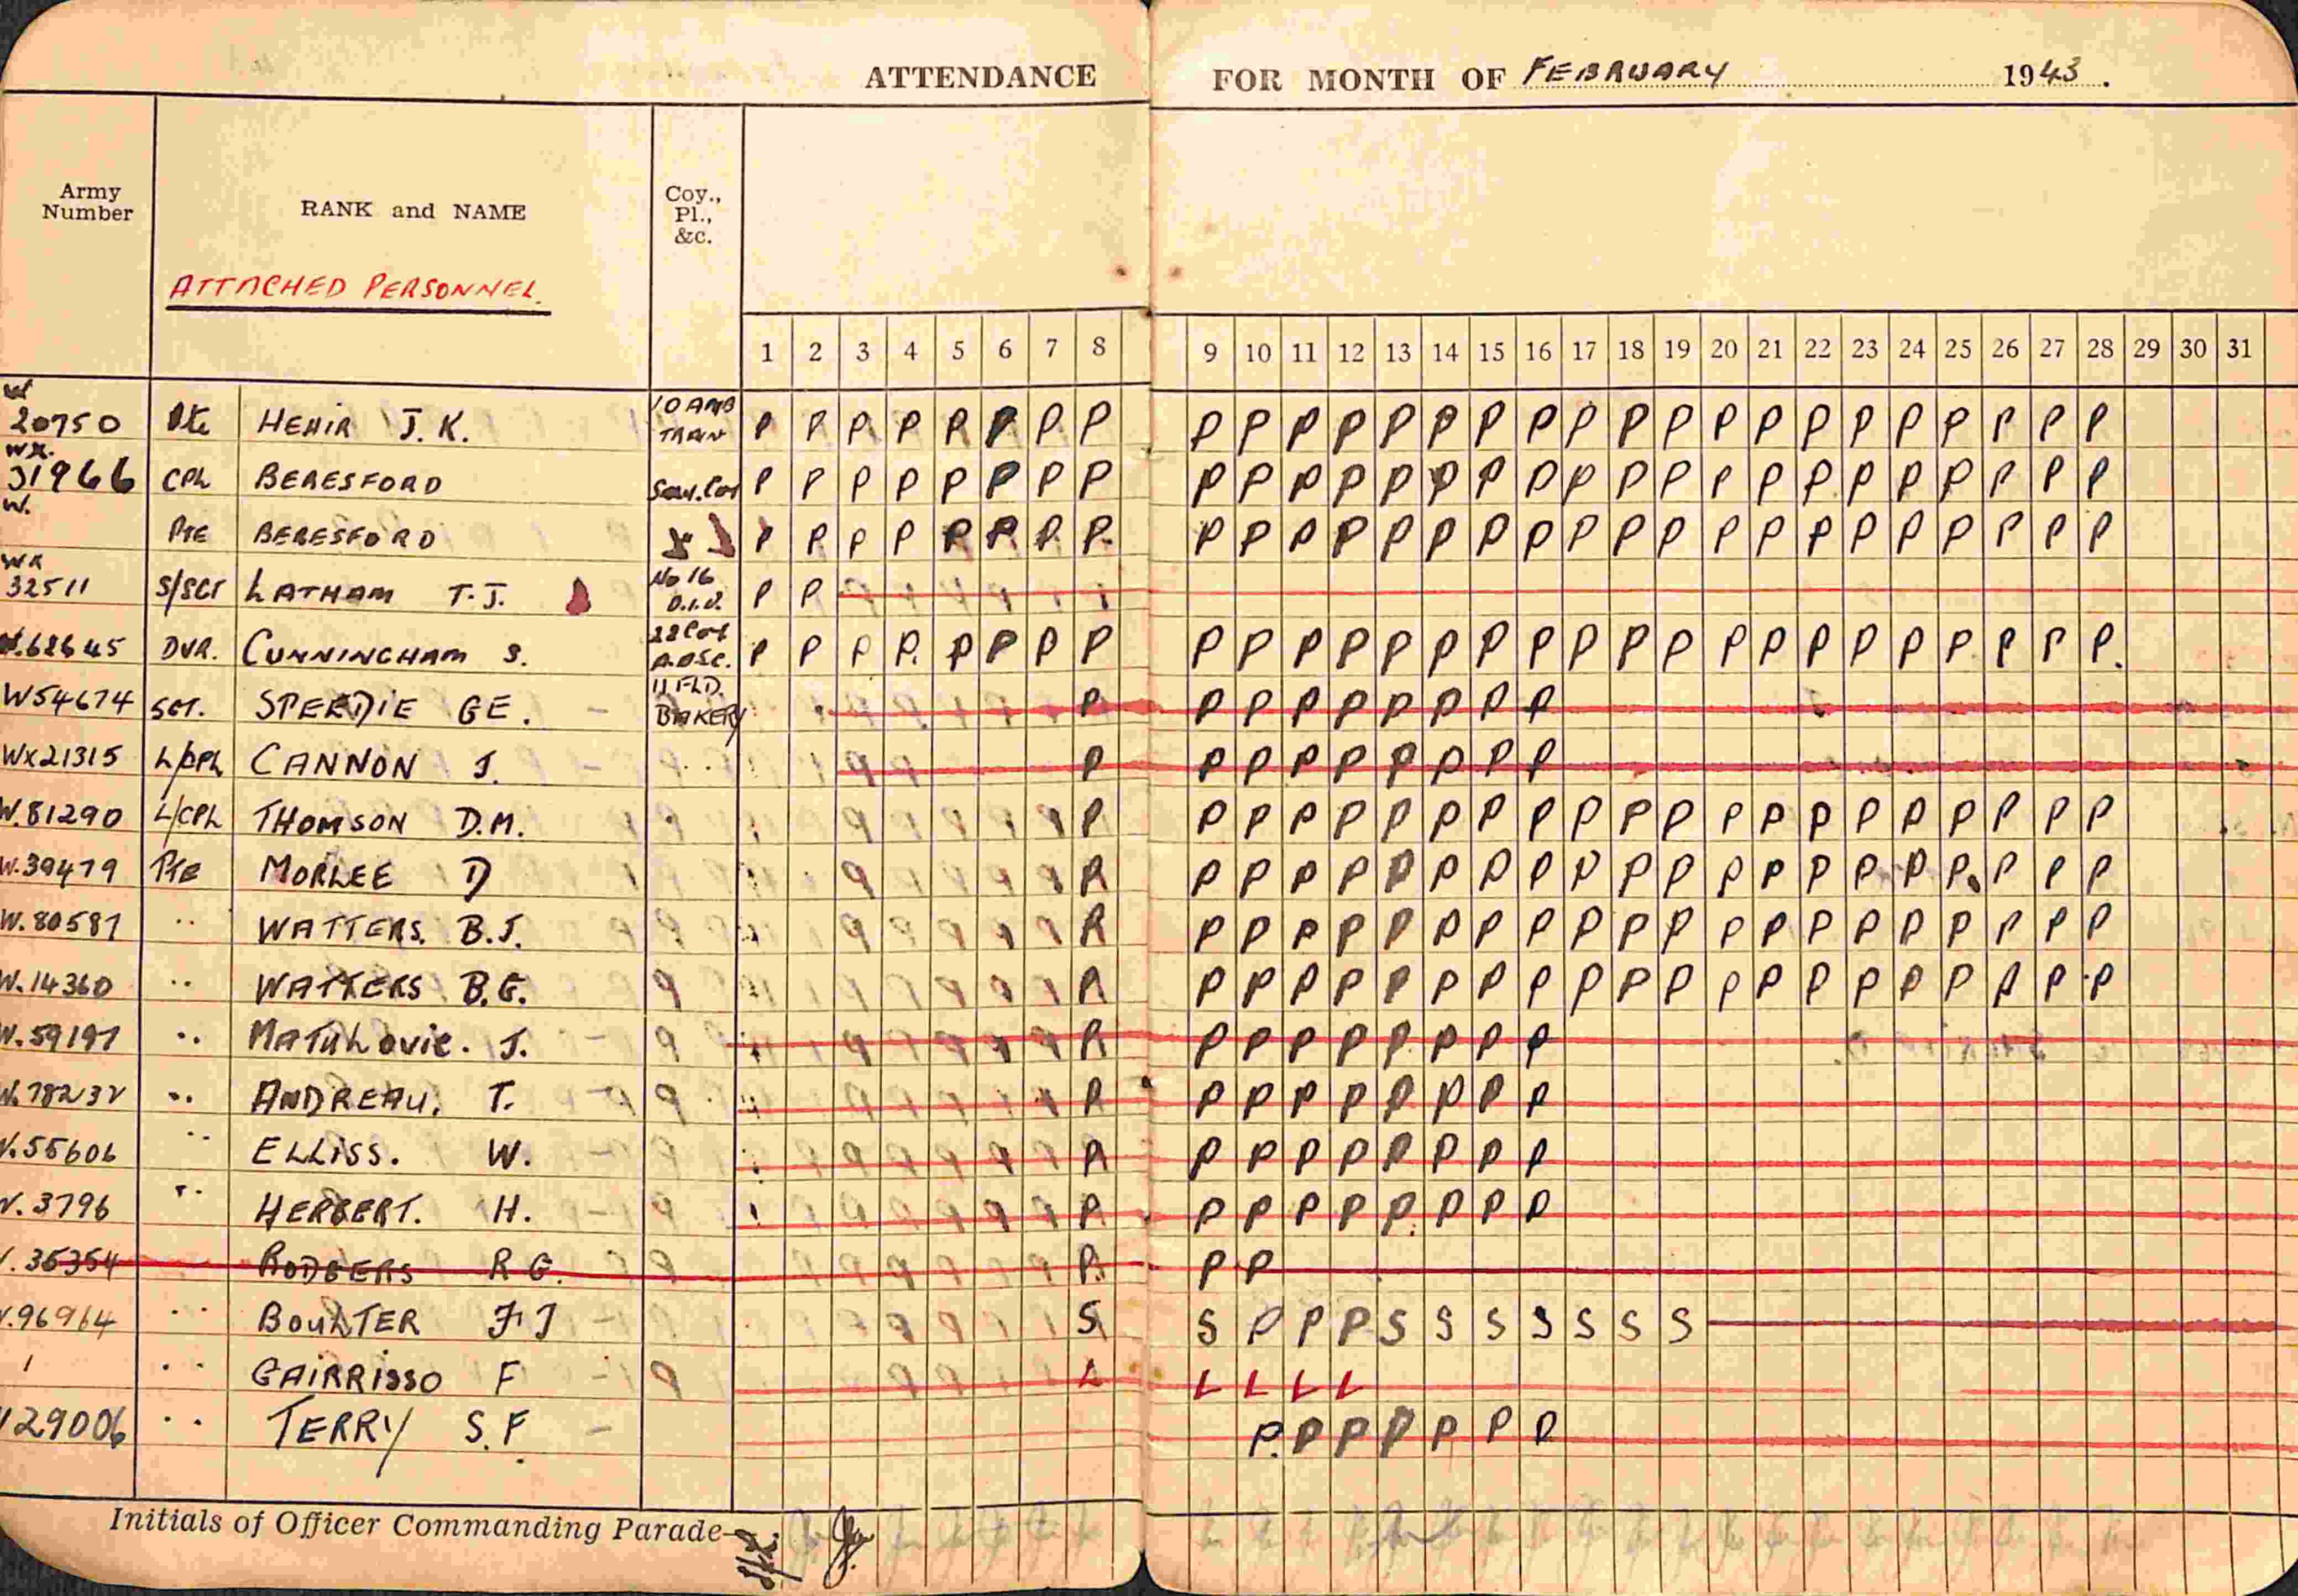 ATTENDANCE FOR MONTH OF FEBRUARY 1943.
Army Number RANK and NAME Coy., Pl., &c.
ATTACHED PERSONNEL.
1 2 3 4 5 6 7 8 9 10 11 12 13 14 15 16 17 18 19 20 21 22 23 24 25 26 27 28 29 30 31
W 20750 Pte HEHIR J.K. 10 AMB TRAIN P P P P P P P P P P P P P P P P P P P P P P P P P P P P
WX. 31966 CPL BERESFORD P P P P P P P P P P P P P P P P P P P P P P P P P P P P
W. PTE BERESFORD P P P P P P P P P P P P P P P P P P P P P P P P P P P P
WX 32511 S/SGT LATHAM T.J. No 16 P P
DVR. CUNNINGHAM S. P P P P. P P P P P P P P P P P P P P P P P P P P P P P P.
W54674 SGT. SPEEDIE GE. 11 FLD. BAKERY P P P P P P P P P
WX21315 L/CPL CANNON J. P P P P P P P P P
W.81290 L/CPL THOMSON D.M. P P P P P P P P P P P P P P P P P P P P P
W.39479 Pte MORLEE D P P P P P P P P P P P P P P P P P P P P P
W.80587 .. WATTERS. B.J. P P P P P P P P P P P P P P P P P P P P P
W.14360 .. WATTERS B.G. P P P P P P P P P P P P P P P P P P P P P
W.59197 .. MATULOVIC. J. P P P P P P P P P
W.78232 .. ANDREAU. T. P P P P P P P P P
.55606 .. ELLISS. W. P P P P P P P P P
.3796 .. HERBERT. H. P P P P P P P P P
.35354 RODGERS R G. P. P P
.96964 .. BOULTER F J S S P P P S S S S S S S
.. GAIRRISSO F L L L L L
29006 .. TERRY S.F P. P P P P P P
Initials of Officer Commanding Parade